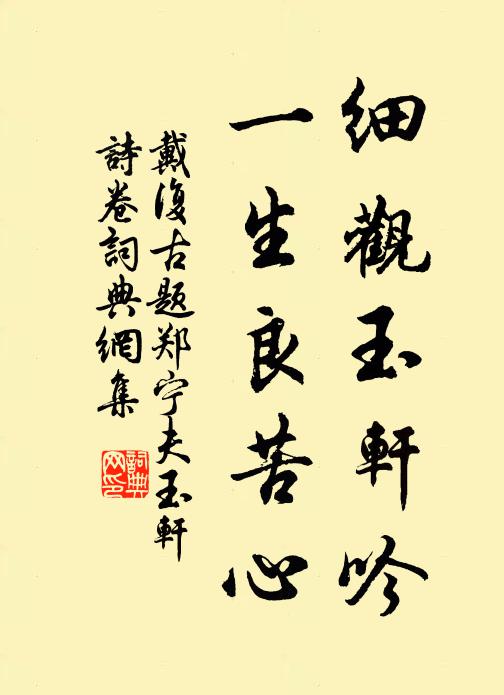 細觀玉軒吟
一生良苦心
戴復古題郑宁夫玉軒
詩卷詞典網集
詞典
网印